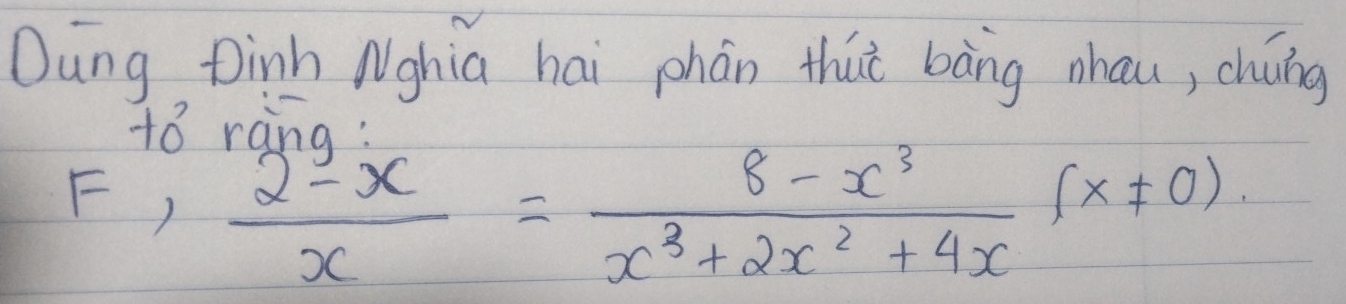 Dùng Định Nghĩa hai phân thức bằng nhau, chứng
tỏ rằng:
F, \frac{2-x}{x} = \frac{8-x^3}{x^3+2x^2+4x} (x ≠ 0).